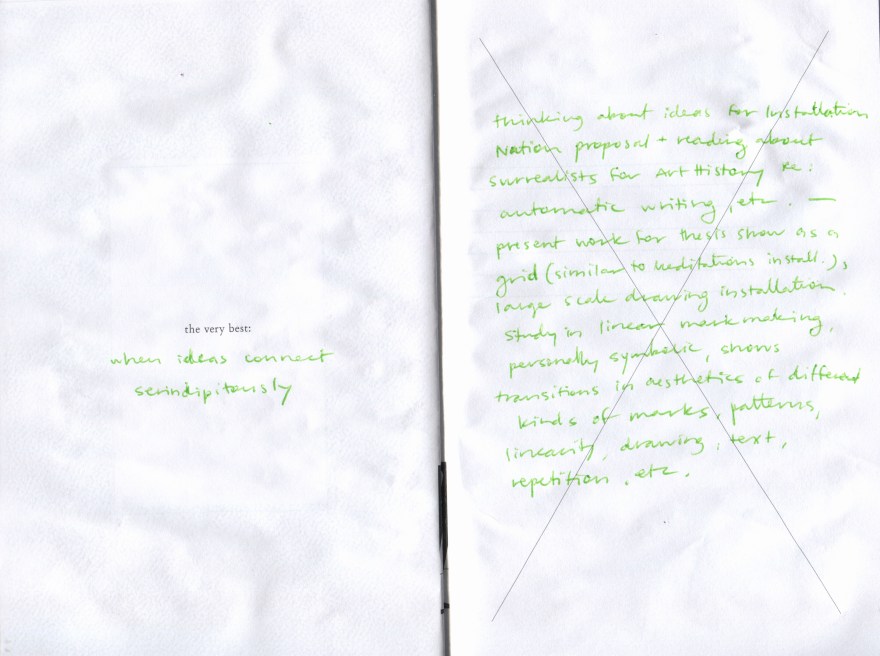 the very best:
when ideas connect
serindipitously
thinking about ideas for Installation
Nation proposal + reading about
surrealists for Art History re:
automatic writing, etc. —
present work for thesis show as a
grid (similar to meditations install.),
large scale drawing installation.
Study in linear markmaking,
personally symbolic, shows
transitions in aesthetics of different
kinds of marks, patterns,
linearity, drawing, text,
repetition, etc.